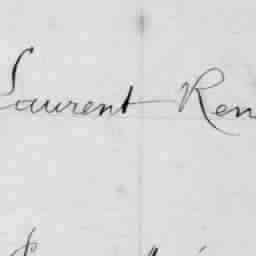 Laurent Ren